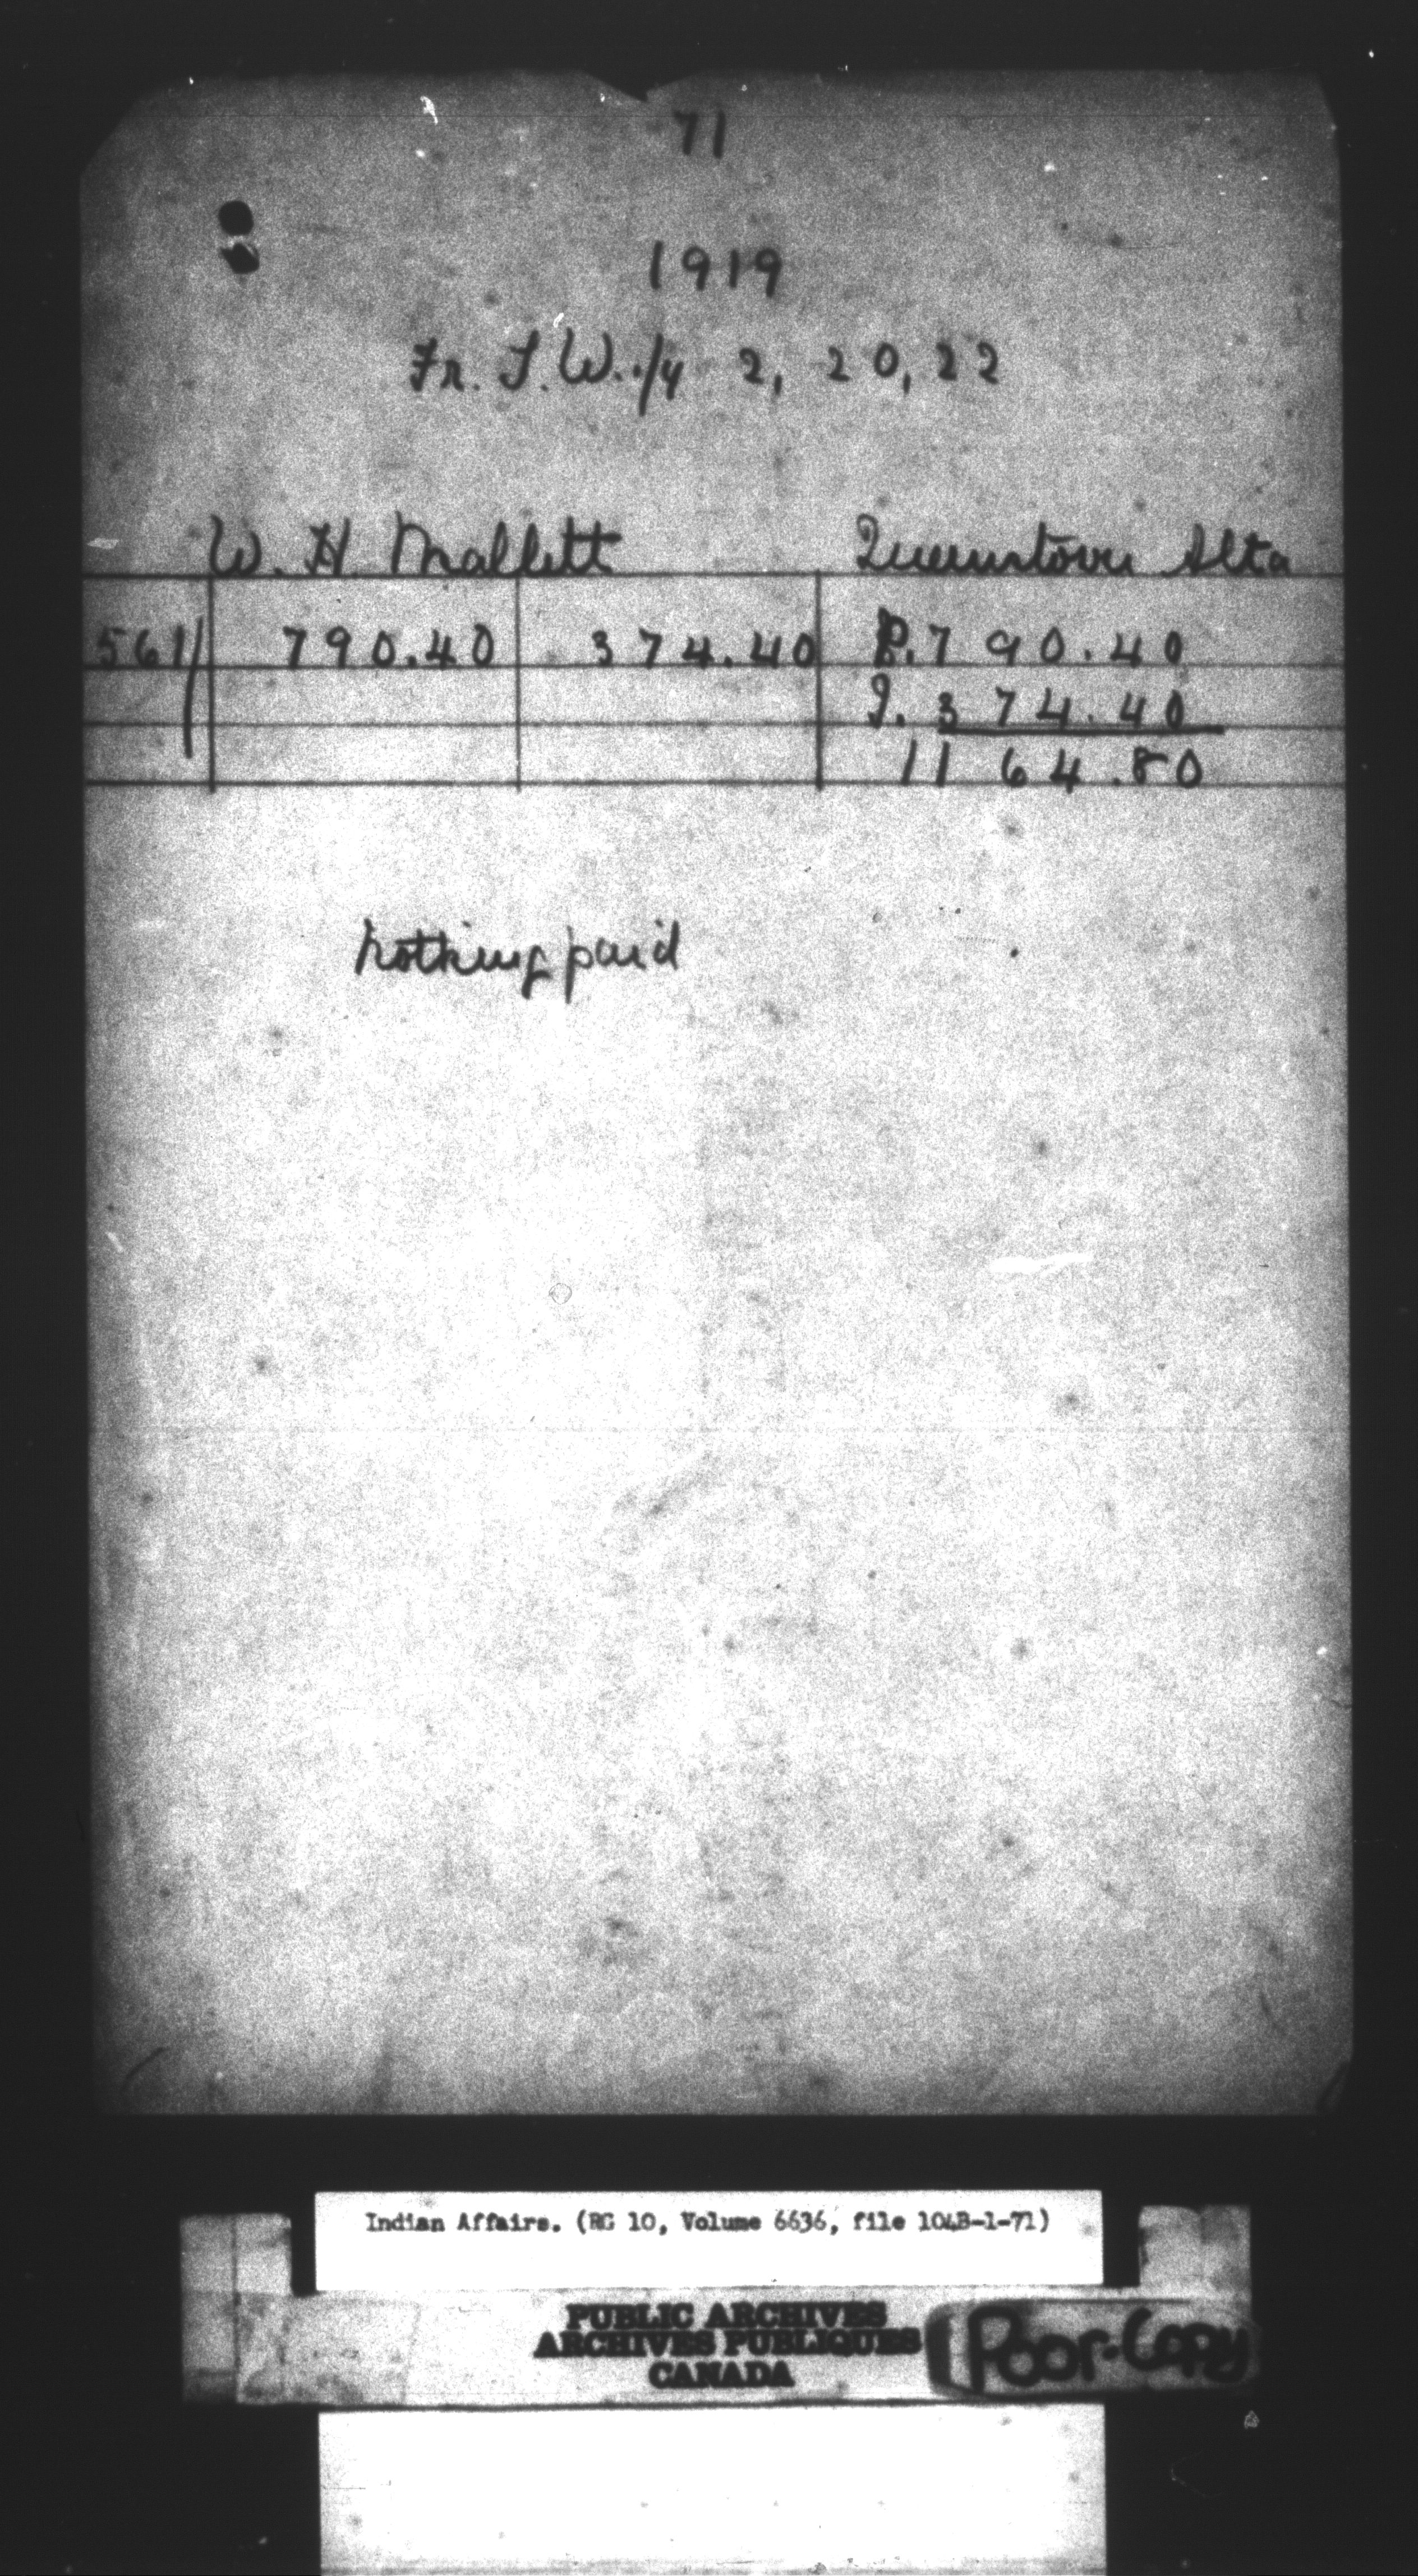 71
1919
Fr. S.W. 1/4 2, 20, 22
W. H. Mallett Queenstown Alta
561 790.40 374.40 P. 790.40
I. 374.40
1164.80
Nothing paid
Indian Affairs. (RG 10, Volume 6636, file 104B-1-71)
PUBLIC ARCHIVES
ARCHIVES PUBLIQUES
CANADA
Poor-Copy